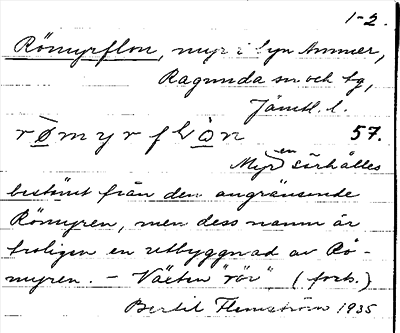 1-2.
Römyrflon, myr i byn Ammer,
Ragunda sn och tg,
Jämtl. l.
rømyrflòn 57.
Myren särhålles
bestämt från den angränsande
Römyren, men dess namn är
troligen en utbyggnad av Rö-
myren. – Växten "rör" (fork.)
Bertil Flemström 1935